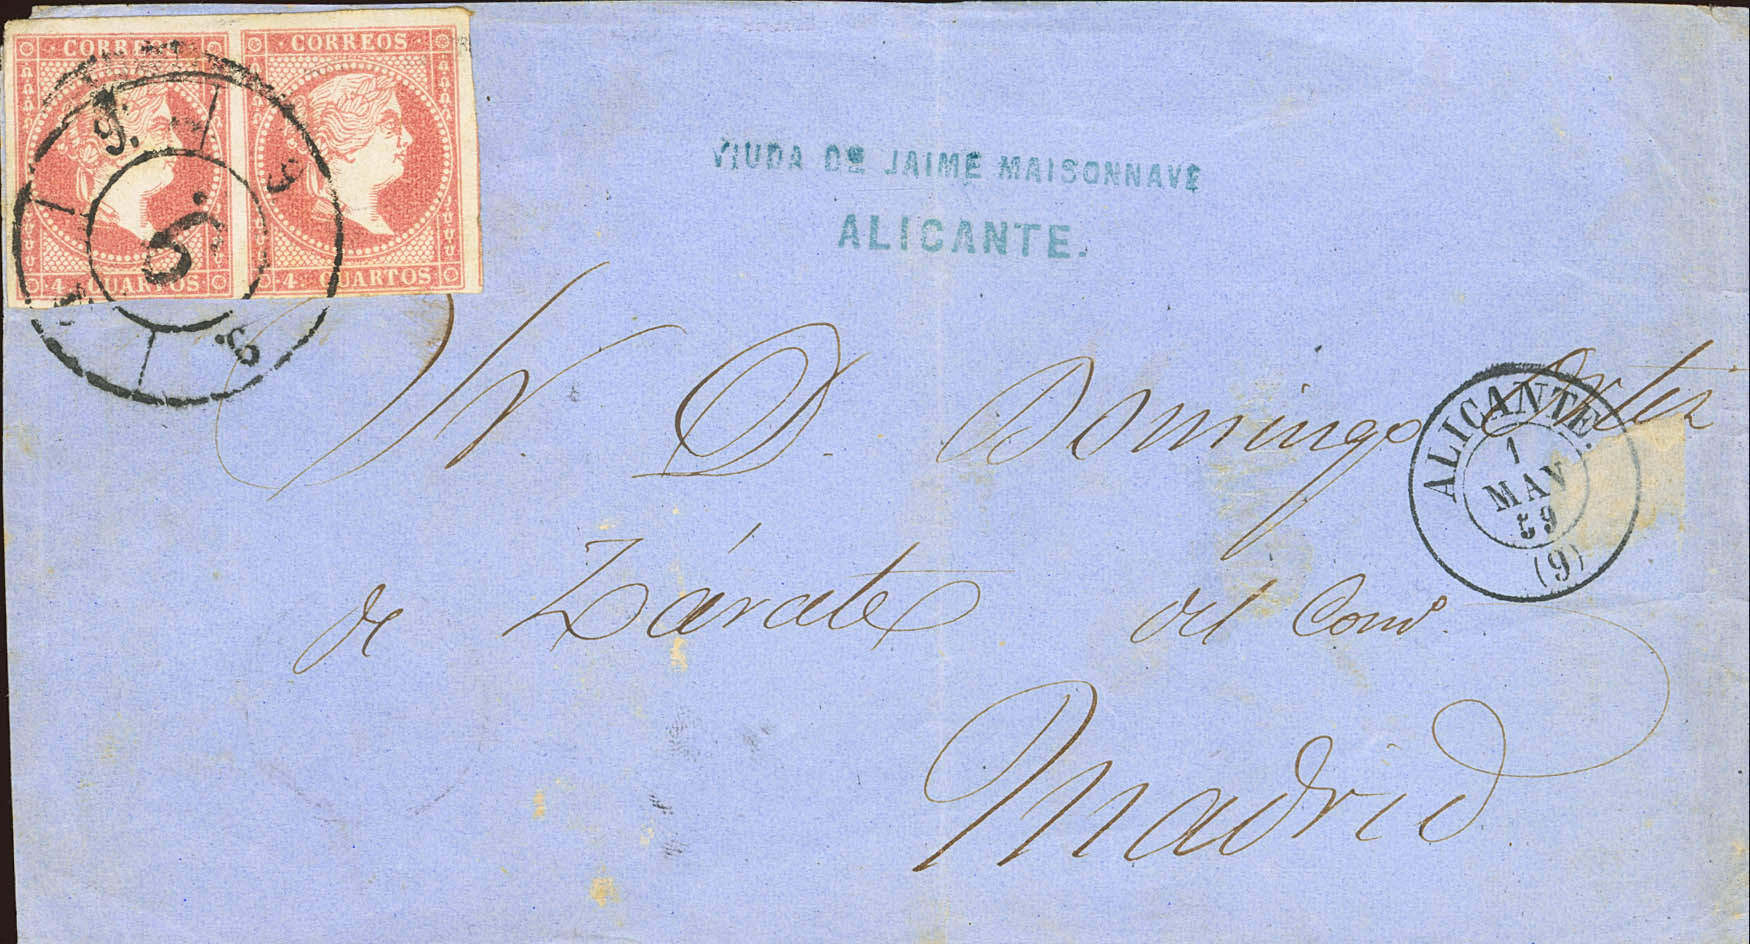 CORREOS CORREOS
4 CUARTOS 4 CUARTOS
VIUDA DE JAIME MAISONNAVE
ALICANTE.
Sr. D. Domingo Ortiz
de Zárate del Comº.
Madrid
ALICANTE.
1
MAY
59
(9)